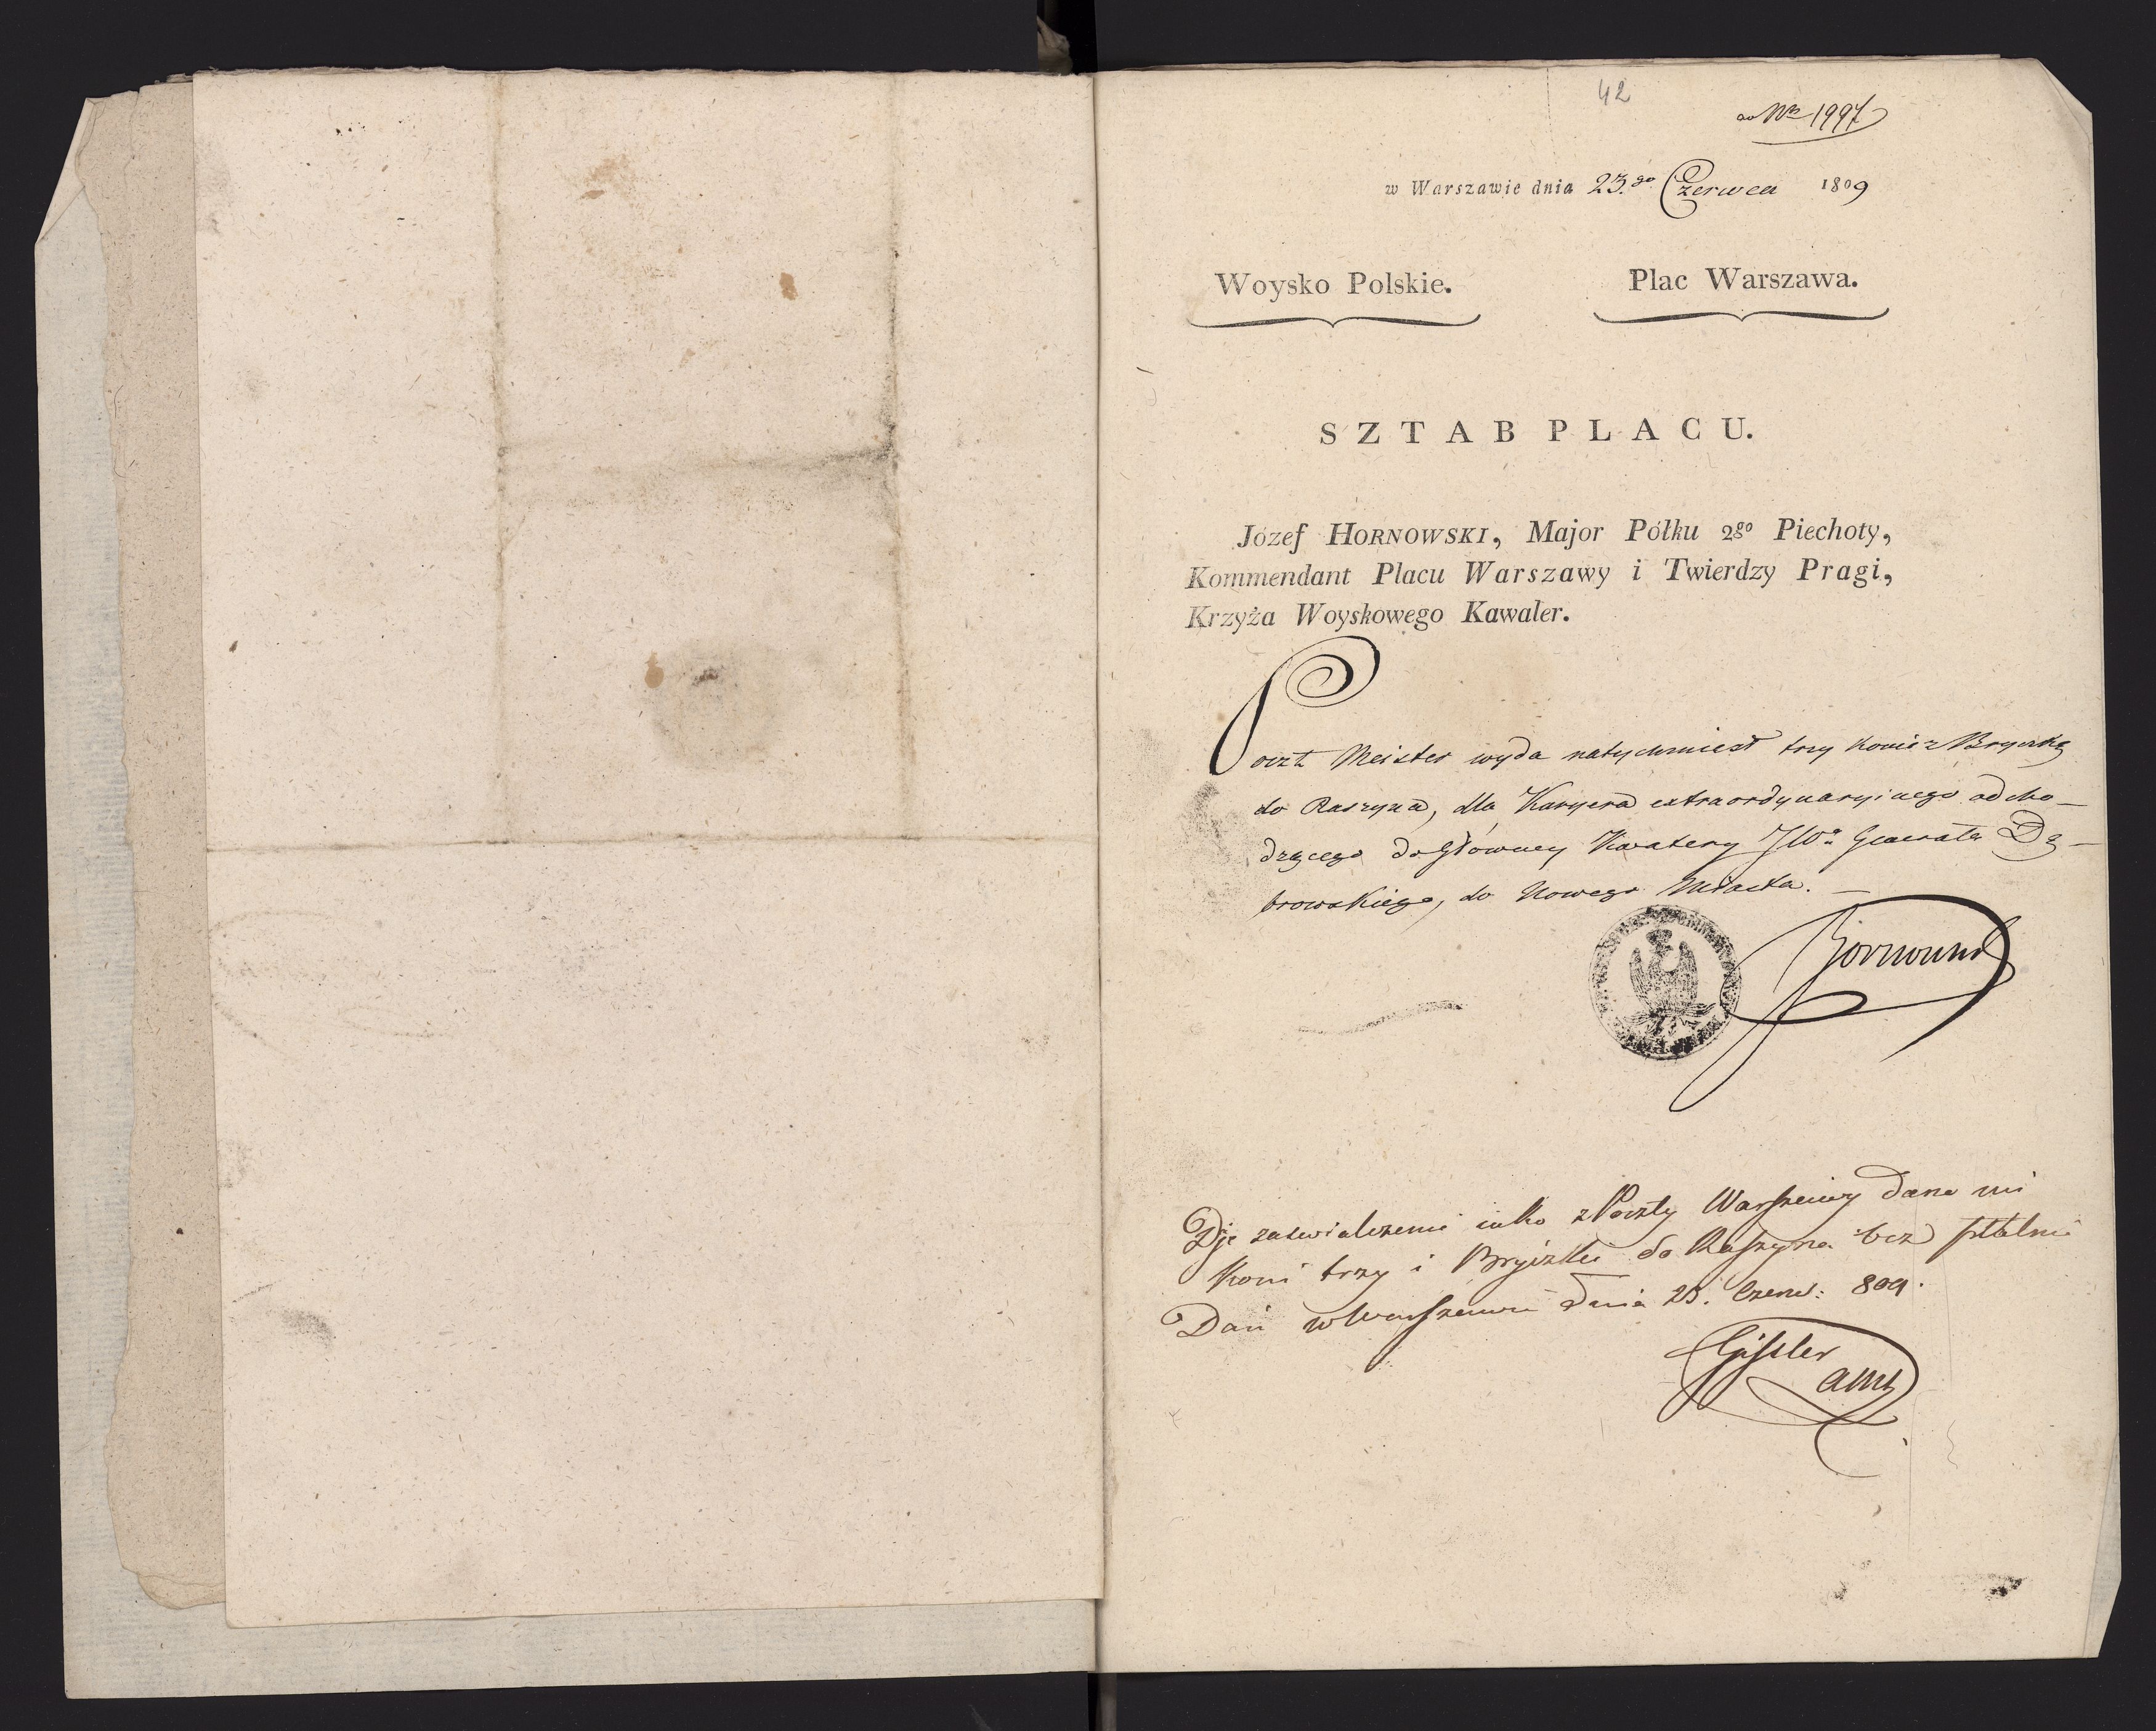 42
ad Nro 1997
w Warszawie dnia 23.go Czerwca 1809
Woysko Polskie. Plac Warszawa.
SZTAB PLACU.
Józef HORNOWSKI, Major Półku 2go Piechoty,
Kommendant Placu Warszawy i Twierdzy Pragi,
Krzyża Woyskowego Kawaler.
Poczt Meister wyda natychmiast trzy konie z Bryczką
do Raszyna, dla Kuryera extraordynaryinego odcho-
dzącego do Główney Kwatery JWo Generała Dą-
browskiego, do Nowego Miasta. —
Daję zaświadczenie iako z Poczty Warszawy dano mi
koni trzy i Bryczkę do Raszyna bez płatnie
Dań w Warszawie dnia 23. Czerw: 809.
Gissler